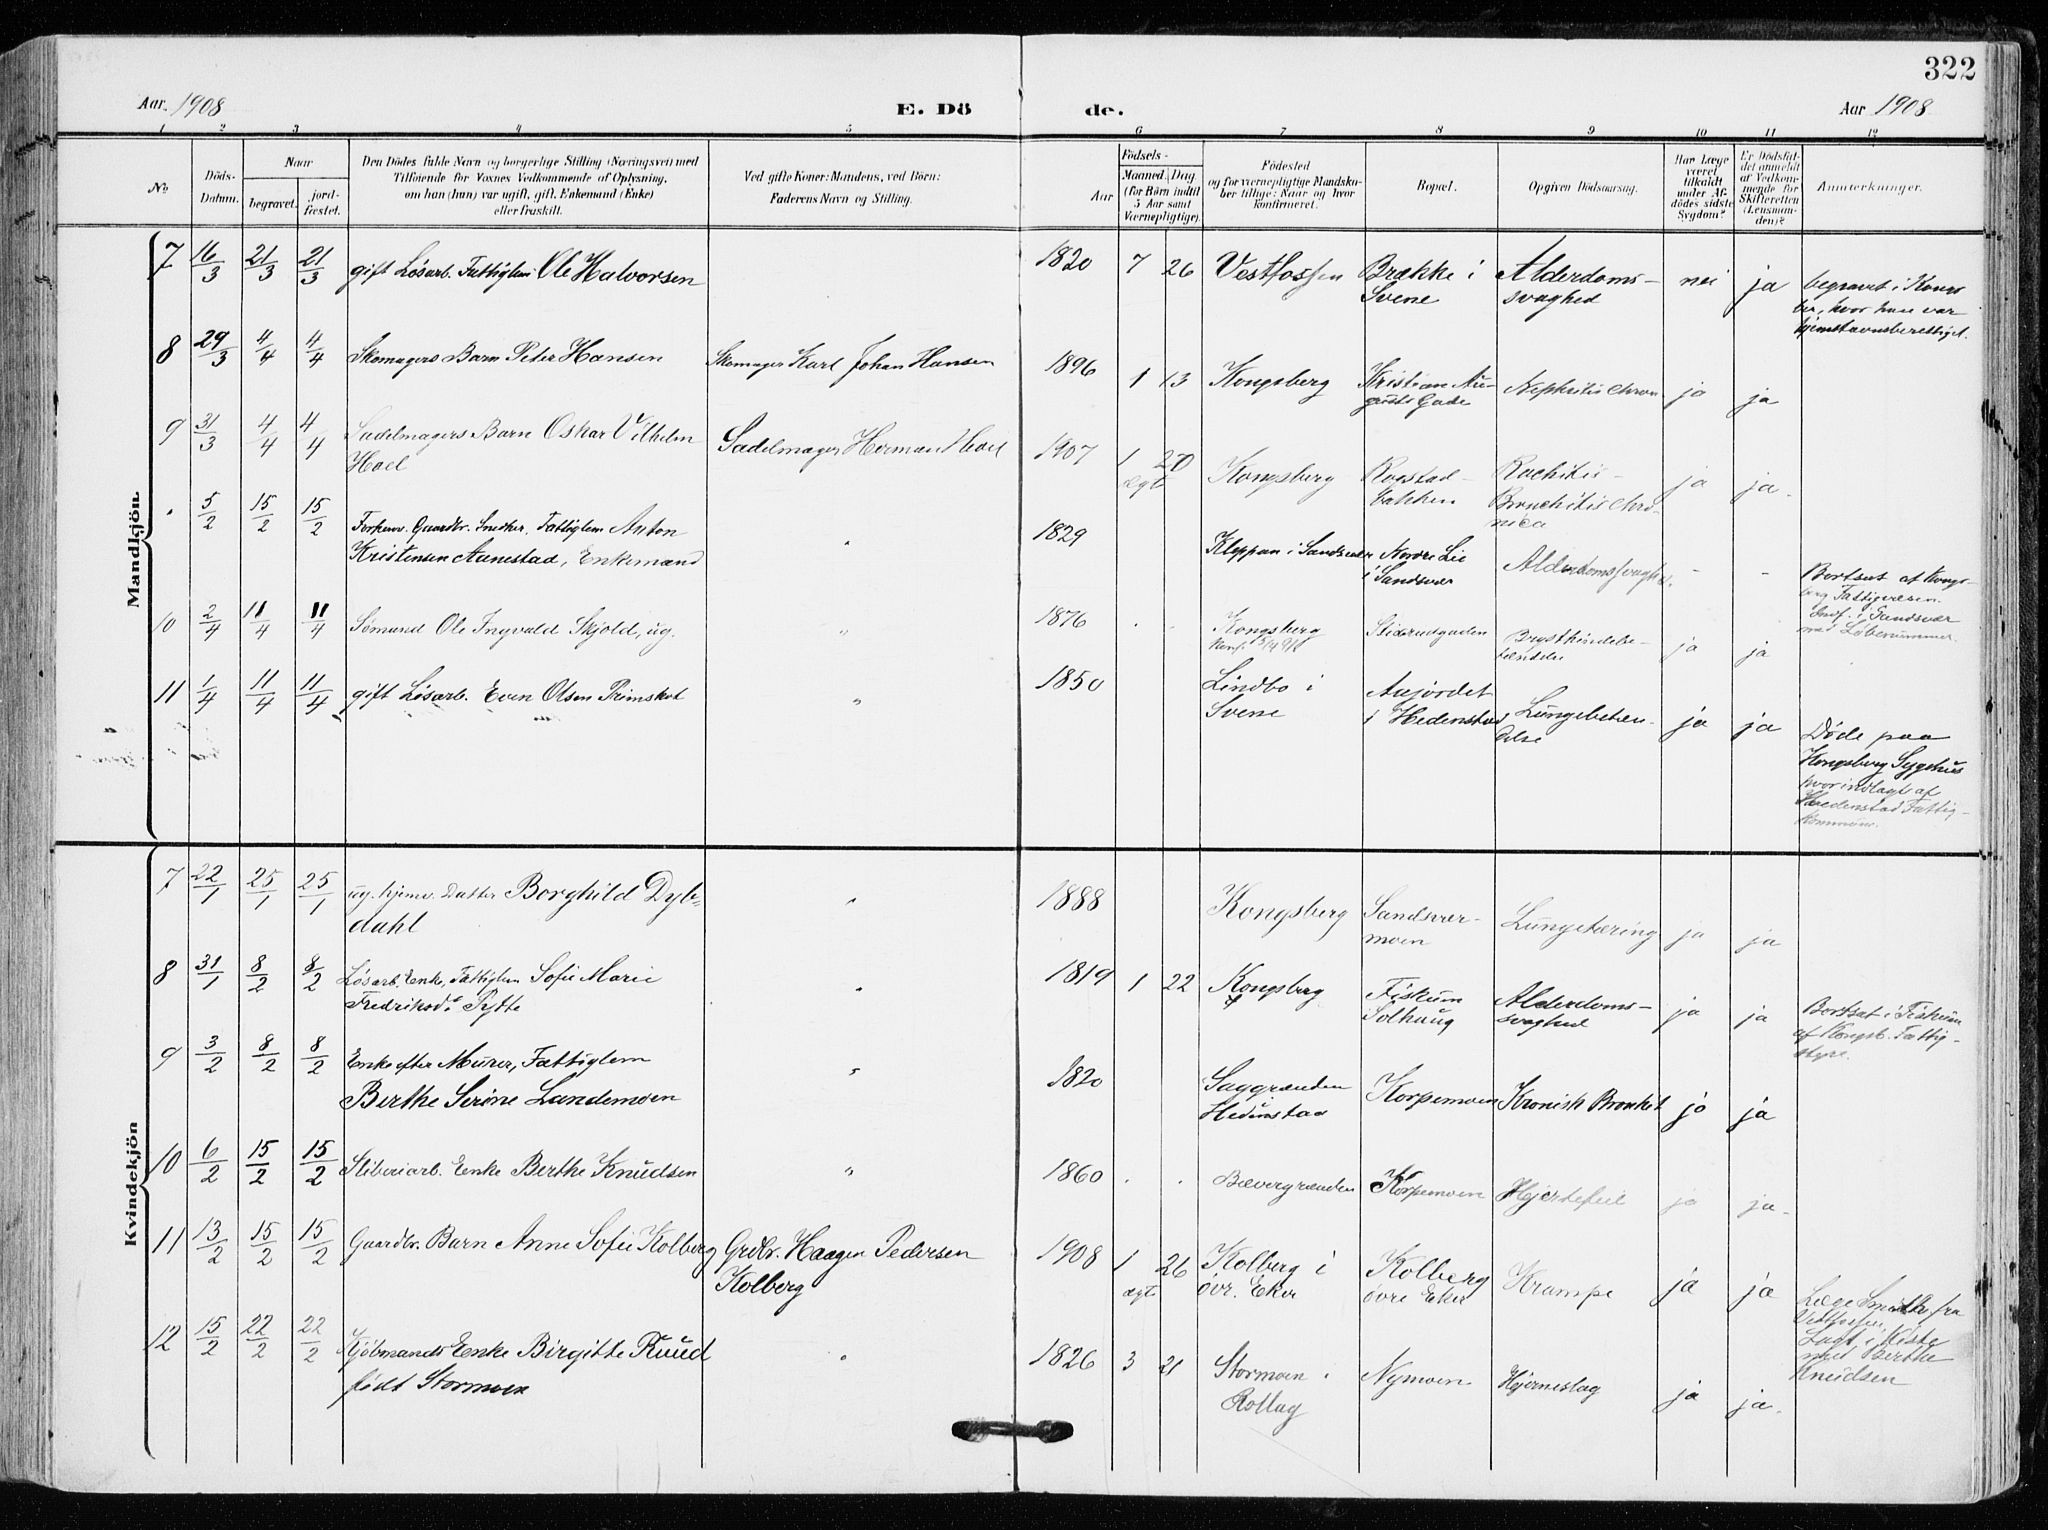 322
Aar. 1908 E. Dö de. Aar 1908
1 2 3 4 5 6 7 8 9 10 11 12
No
Döds-Datum.
Naar
begravet. jordfæstet.
Den Dödes fulde Navn og borgerlige Stilling (Næringsvei) med
Tilföiende for Voxnes Vedkommende af Oplysning,
om han (hun) var ugift, gift, Enkemand (Enke)
eller fraskilt.
Ved gifte Koner: Mandens, ved Börn:
Faderens Navn og Stilling.
Födsels-
Aar Maaned. Dag
(for Börn indtil
5 Aar samt
Værnepligtige).
Födested
og for værnepligtige Mandskaber tillige: Naar og hvor
konfirmeret.
Bopæl.
Opgiven Dödsaarsag.
Har Læge
været
tilkaldt
under Afdödes sidste
Sygdom?
Er Dödsfaldet anmeldt
af Vedkommende for
Skifteretten
(Lensmanden)?
Anmerkninger.
Mandkjön.
7 16/3 21/3 21/3 gift Løsarb. Fattiglem Ole Halvorsen 1820 7 26 Vestfossen Brække i Svene Alderdomssvaghed nei ja begravet i Kongsber, hvor han var hjemstavnsberettiget.
8 29/3 4/4 4/4 Skomagers Barn Peter Hansen Skomager Karl Johan Hansen 1896 1 13 Kongsberg Kristian Augusts Gade Nephritis chron ja ja
9 31/3 4/4 4/4 Sadelmagers Barn Oskar Vilhelm Hoel Sadelmager Herman Hoel 1907 1 20 ægt Kongsberg Rogstadbakken Rachitis - Bronchitis chronica ja ja.
" 5/2 15/2 15/2 Forhenv. Gaardbr. Snedker, Fattiglem Anton Kristensen Aanestad, Enkemand " 1829 Kleppan i Sandsvær Nordre Lie i Sandsvær Alderdomssvaghed. - - Bortsat af Kongsberg Fattigvæsen. Indf. i Sandsvær med Løbenummer.
10 2/4 11/4 11/4 Sømand Ole Ingvald Skjold, ug. " 1876 . . Kongsberg Konf. Brysthindebetændelse ja ja
11 1/4 11/4 11/4 gift Løsarb. Even Olsen Primskot " 1850 Lindbo i Svene Aajordet i Hedenstad Lungebetændelse ja ja Døde paa Kongsberg Sygehus hvor indlagt af Hedenstad Fattigkommune.
Kvindekjön
7 22/1 25/1 25/1 ug. hjemv. Datter Borghild Dybedahl " 1888 Kongsberg Sandsværmoen Lungetæring ja ja
8 31/1 8/2 8/2 Løsarb. Enke, Fattiglem Sofie Marie Fredriksd. Pytte " 1819 1 22 Kongsberg Fiskum Solhaug Alderdomssvaghed ja ja Bortsat i Fiskum af Kongsb. Fattigstyre.
9 3/2 8/2 8/2 Enke efter Murer, Fattiglem Berthe Serine Landemoen " 1820 Saggrænden Hedenstad Korpemoen Kronisk Bronkit ja ja
10 6/2 15/2 15/2 Sliberiarb. Enke Berthe Knudsen " 1860 . . Bævergrænden Korpemoen Hjertefeil ja ja.
11 13/2 15/2 15/2 Gaardbr. Barn Anne Sofie Kolberg Grdbr. Haagen Pedersen Kolberg 1908 1 26 ægt Kolberg i øvr. Eker Kolberg øvre Eker Krampe ja ja Læge Smith fra Vestfossen. Lagt i Kiste med Berthe Knudsen
12 15/2 22/2 22/2 Kjøbmands Enke Birgitte Ruud født Stormoen " 1826 3 21 Stormoen i Rollag Nymoen Hjerneslag ja ja.